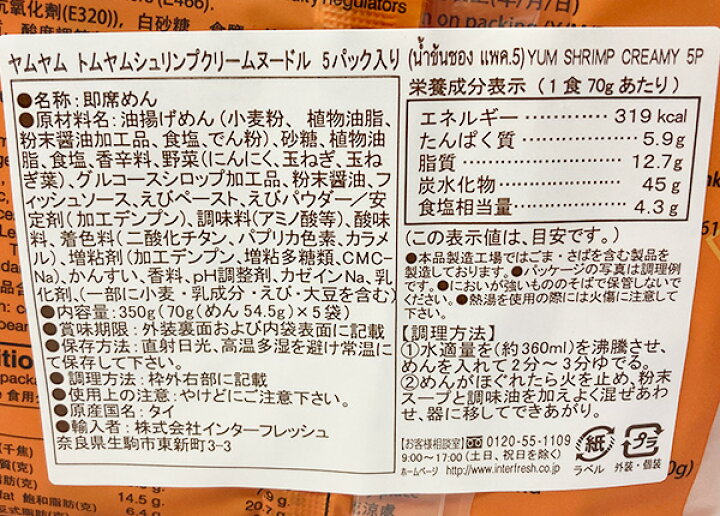 抗氧化劑(E320)、白砂糖、食鹽
ヤムヤム トムヤムシュリンプクリームヌードル 5パック入り (น้ำข้นซอง แพค.5) YUM SHRIMP CREAMY 5P
●名称：即席めん
●原材料名：油揚げめん（小麦粉、植物油脂、
粉末醤油加工品、食塩、でん粉）、砂糖、植物油
脂、食塩、香辛料、野菜（にんにく、玉ねぎ、玉ね
ぎ葉）、グルコースシロップ加工品、粉末醤油、フィ
ッシュソース、えびペースト、えびパウダー／安
定剤（加工デンプン）、調味料（アミノ酸等）、酸味
料、着色料（二酸化チタン、パプリカ色素、カラメ
ル）、増粘剤（加工デンプン、増粘多糖類、CMC-
Na）、かんすい、香料、pH調整剤、カゼインNa、乳
化剤、（一部に小麦・乳成分・えび・大豆を含む）
●内容量：350g（70g（めん 54.5g）×5袋）
●賞味期限：外装裏面および内袋表面に記載
●保存方法：直射日光、高温多湿を避け常温に
て保存して下さい。
●調理方法：枠外右部に記載
●使用上の注意：やけどにご注意下さい。
●原産国名：タイ
●輸入者：株式会社インターフレッシュ
奈良県生駒市東新町3-3
栄養成分表示（1食70gあたり）
エネルギー………… 319 kcal
たんぱく質………… 5.9g
脂質………… 12.7g
炭水化物………… 45g
食塩相当量………… 4.3g
（この表示値は、目安です。）
●本品製造工場ではごま・さばを含む製品を
製造しております。●パッケージの写真は調理例
です。●においが強いもののそばで保管しないで
ください。●熱湯を使用の際には火傷に注意して
下さい。
【調理方法】
①水適量を（約360ml）を沸騰させ、
めんを入れて2分～3分ゆでる。
②めんがほぐれたら火を止め、粉末
スープと調味油を加えよく混ぜあわ
せ、器に移してできあがり。
【お客様相談室】 0120-55-1109
9:00～17:00（土日、祝日を除く）
ホームページ http://www.interfresh.co.jp/
紙
ラベル
プラ
外装・個装
14.5 g
6.4 g
7.9 g
20.7 g